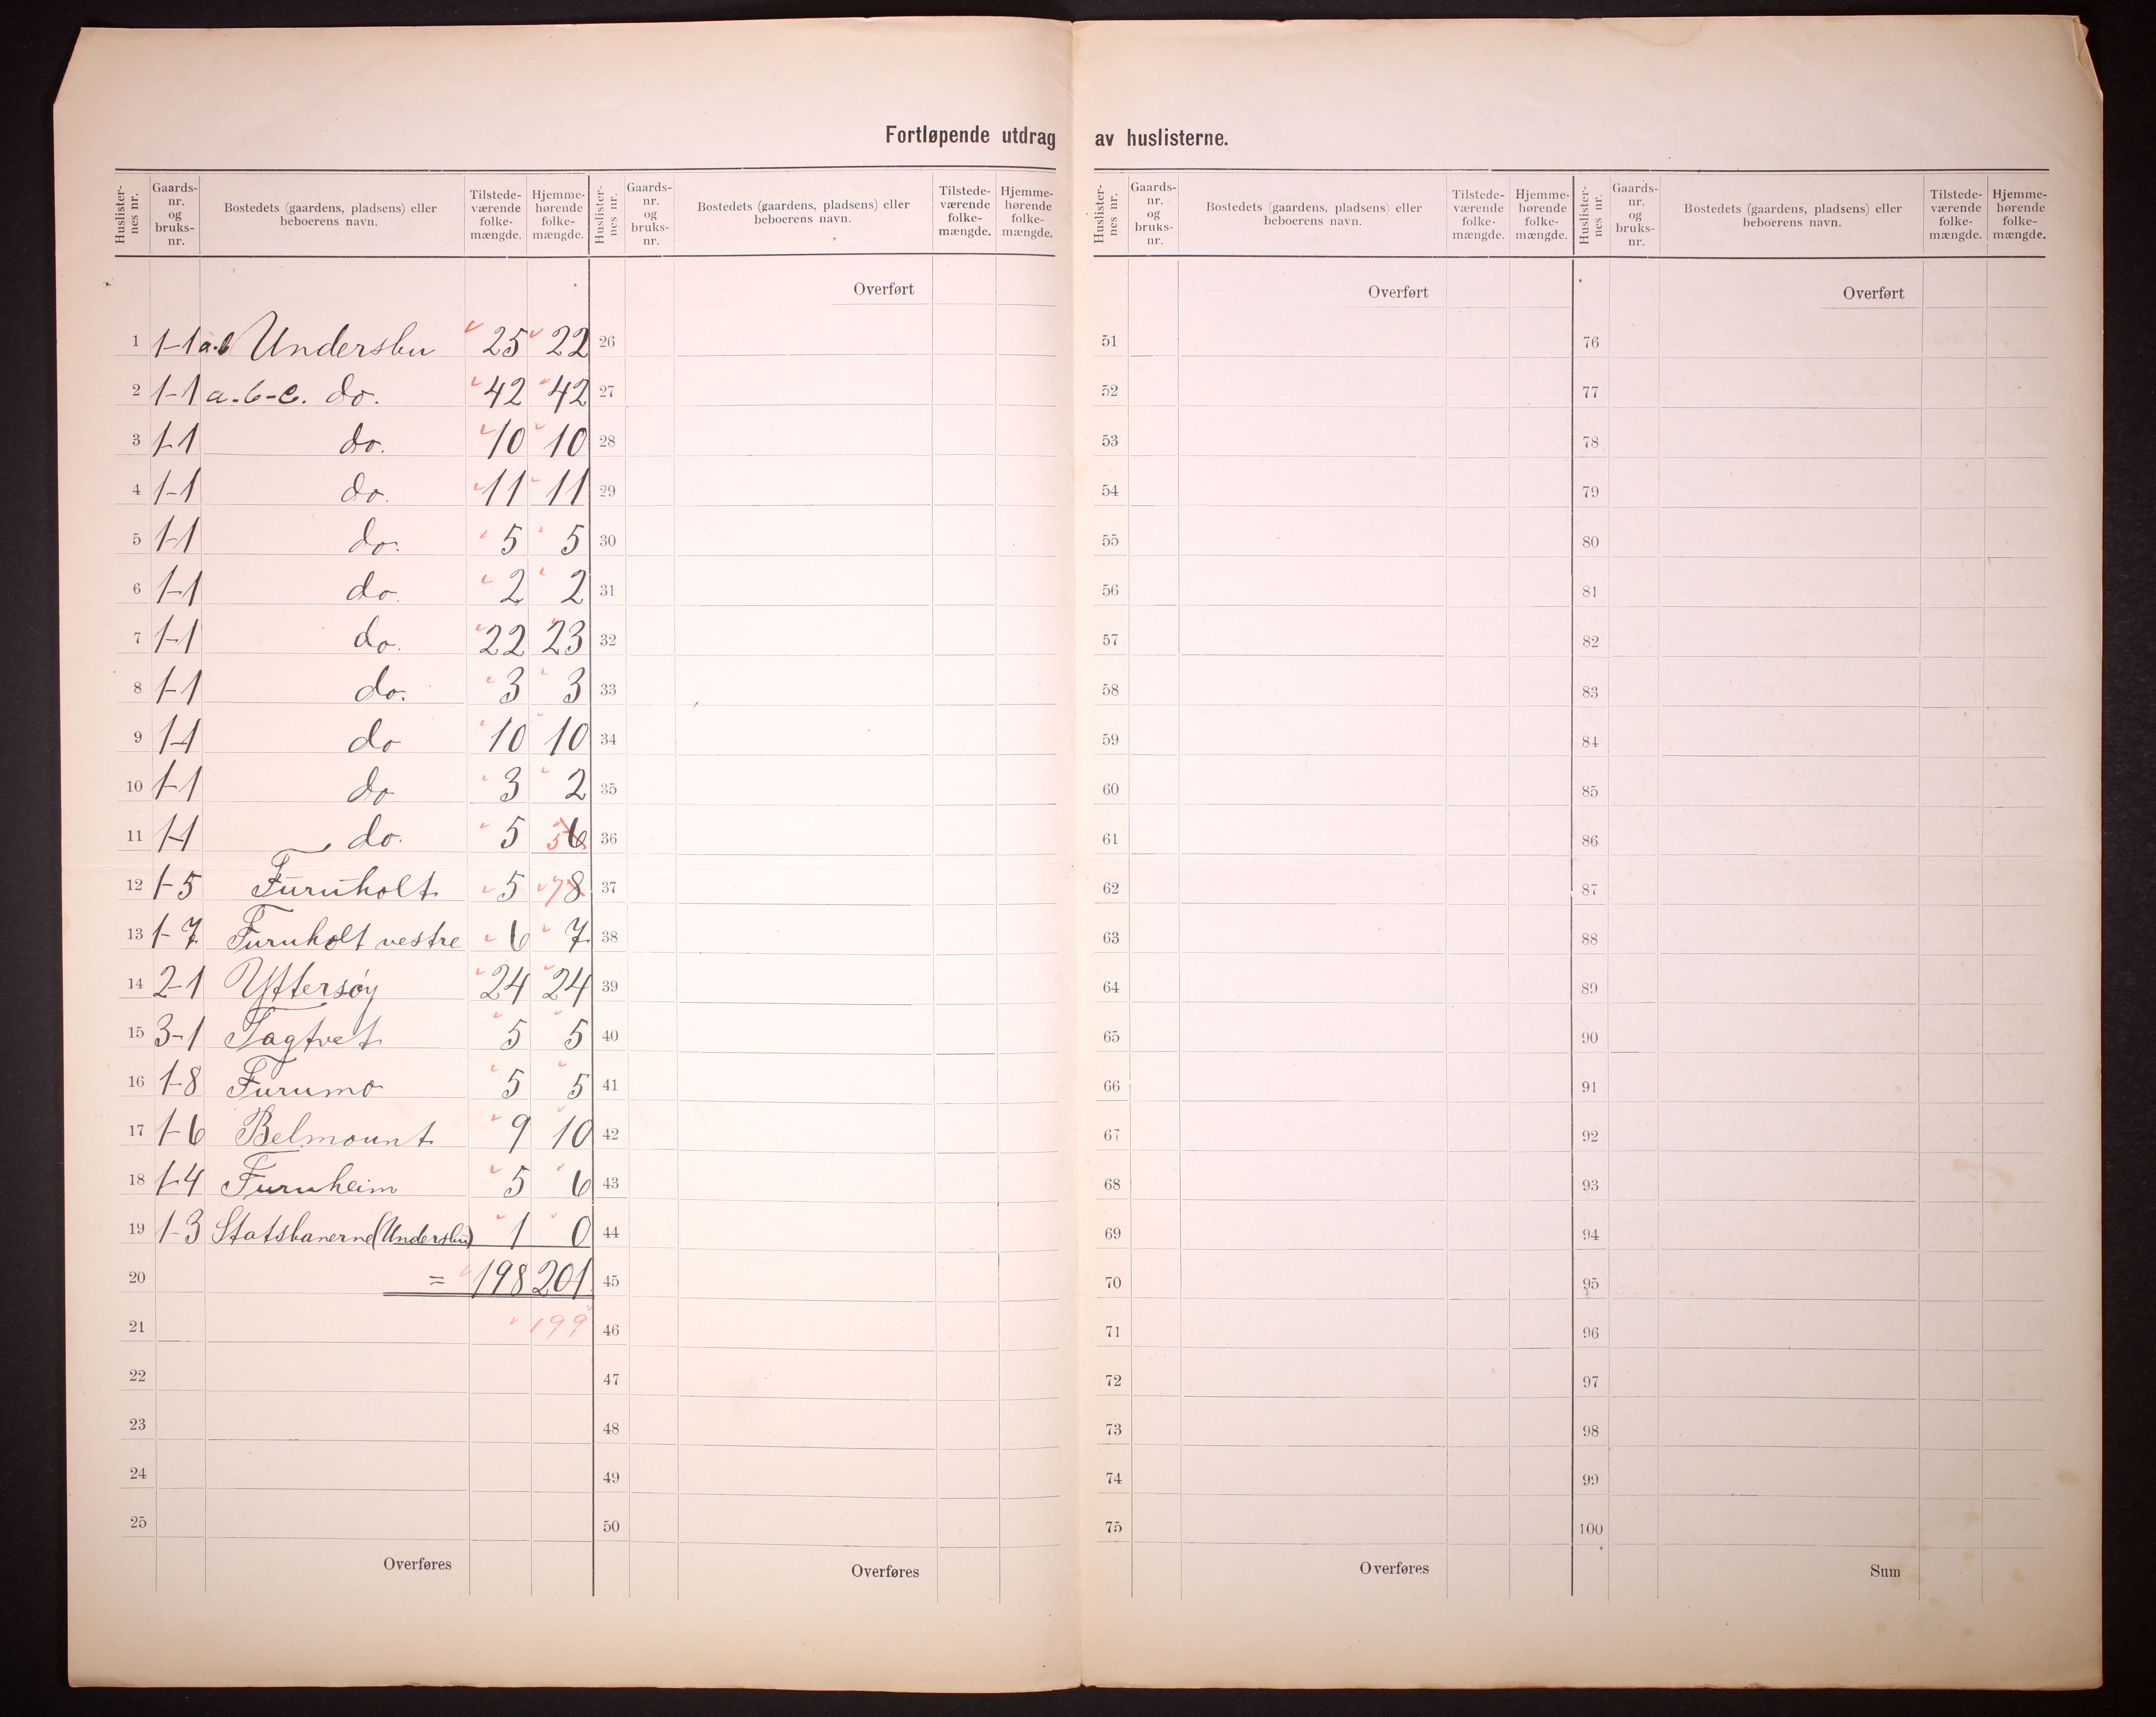 Fortløpende utdrag av huslisterne.
Huslister-nes nr. Gaards-nr. og bruks-nr. Bostedets (gaardens, pladsens) eller beboerens navn. Tilstede-værende folke-mængde. Hjemme-hørende folke-mængde. Huslister-nes nr. Gaards-nr. og bruks-nr. Bostedets (gaardens, pladsens) eller beboerens navn. Tilstede-værende folke-mængde. Hjemme-hørende folke-mængde. Huslister-nes nr. Gaards-nr. og bruks-nr. Bostedets (gaardens, pladsens) eller beboerens navn. Tilstede-værende folke-mængde. Hjemme-hørende folke-mængde. Huslister-nes nr. Gaards-nr. og bruks-nr. Bostedets (gaardens, pladsens) eller beboerens navn. Tilstede-værende folke-mængde. Hjemme-hørende folke-mængde.
Overført Overført Overført
1 1-1 a.b Undersbu 25 22 26 51 76
2 1-1 a.b-c. do. 42 42 27 52 77
3 1-1 do. 10 10 28 53 78
4 1-1 do. 11 11 29 54 79
5 1-1 do. 5 5 30 55 80
6 1-1 do. 2 2 31 56 81
7 1-1 do. 22 23 32 57 82
8 1-1 do. 3 3 33 58 83
9 1-1 do 10 10 34 59 84
10 1-1 do 3 2 35 60 85
11 1-1 do. 5 5 6 36 61 86
12 1-5 Furuholt 5 7 8 37 62 87
13 1-7 Furuholt vestre 6 7 38 63 88
14 2-1 Yttersøy 24 24 39 64 89
15 3-1 Tagtvet 5 5 40 65 90
16 1-8 Furumo 5 5 41 66 91
17 1-6 Belmount 9 10 42 67 92
18 1-4 Furuheim 5 6 43 68 93
19 1-3 Statsbanerne (Undersbu) 1 0 44 69 94
20 = 198 201 45 70 95
21 199 46 71 96
22 47 72 97
23 48 73 98
24 49 74 99
25 50 75 100
Overføres Overføres Overføres Sum